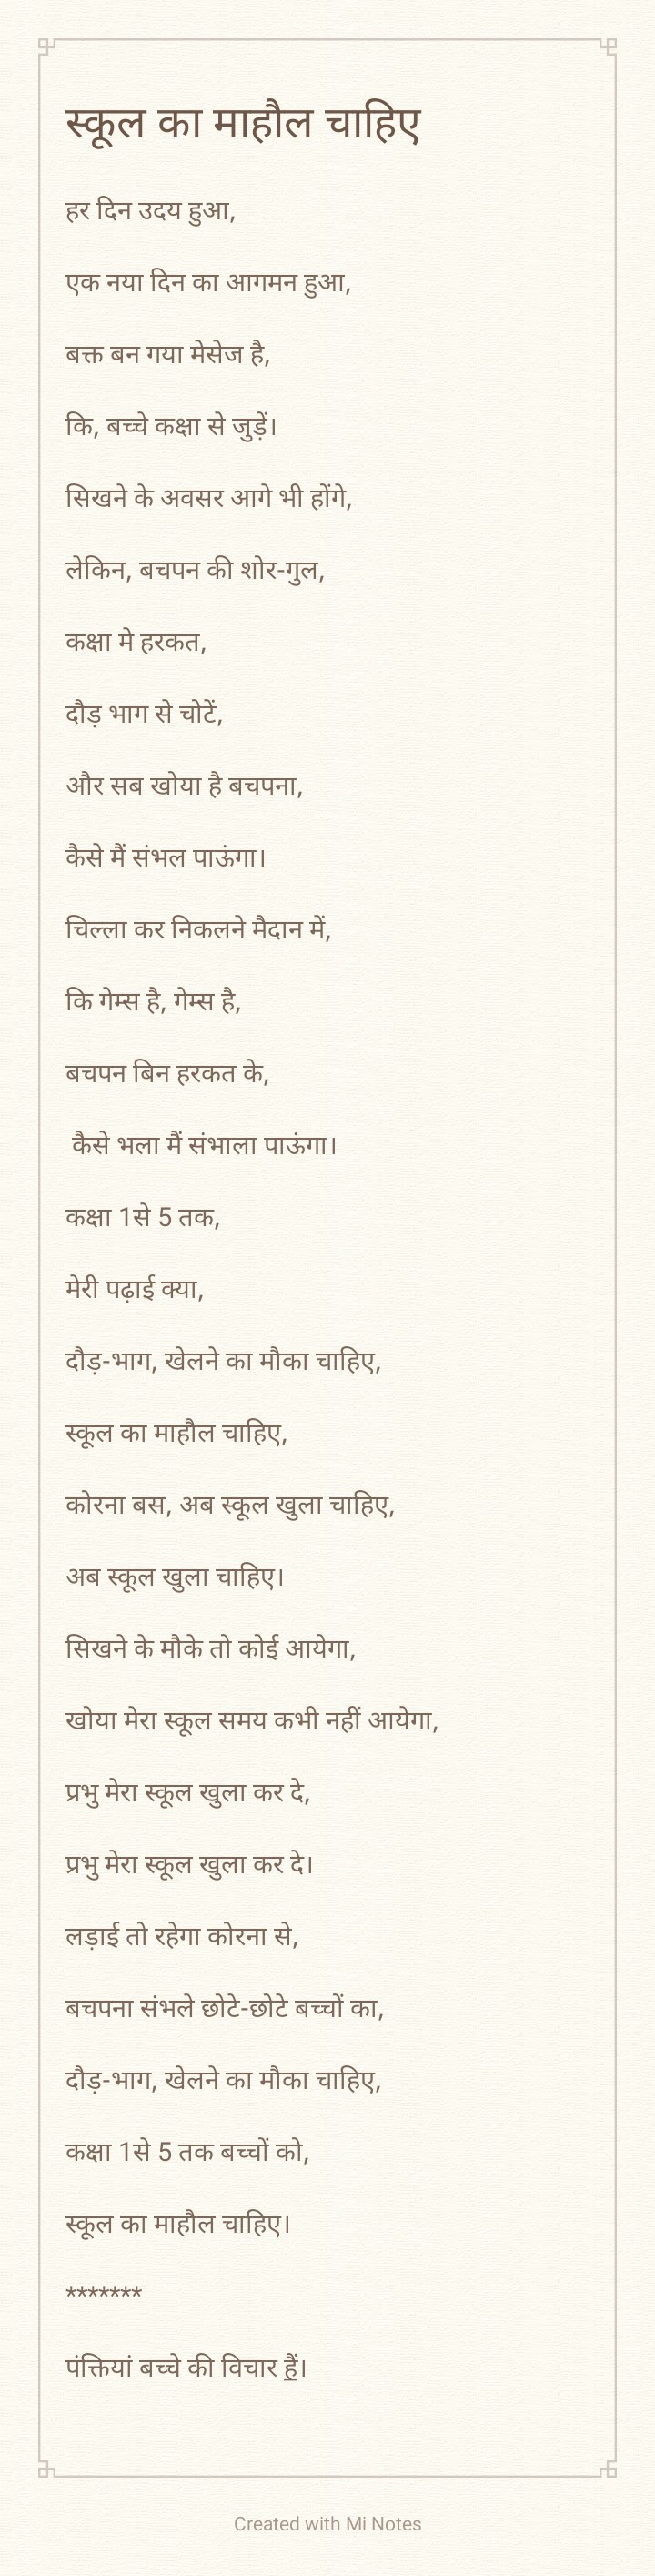 स्कूल का माहौल चाहिए
हर दिन उदय हुआ,
एक नया दिन का आगमन हुआ,
बक्त बन गया मेसेज है,
कि, बच्चे कक्षा से जुड़ें।
सिखने के अवसर आगे भी होंगे,
लेकिन, बचपन की शोर-गुल,
कक्षा मे हरकत,
दौड़ भाग से चोटें,
और सब खोया है बचपना,
कैसे मैं संभल पाऊंगा।
चिल्ला कर निकलने मैदान में,
कि गेम्स है, गेम्स है,
बचपन बिन हरकत के,
कैसे भला मैं संभाला पाऊंगा।
कक्षा 1से 5 तक,
मेरी पढ़ाई क्या,
दौड़-भाग, खेलने का मौका चाहिए,
स्कूल का माहौल चाहिए,
कोरना बस, अब स्कूल खुला चाहिए,
अब स्कूल खुला चाहिए।
सिखने के मौके तो कोई आयेगा,
खोया मेरा स्कूल समय कभी नहीं आयेगा,
प्रभु मेरा स्कूल खुला कर दे,
प्रभु मेरा स्कूल खुला कर दे।
लड़ाई तो रहेगा कोरना से,
बचपना संभले छोटे-छोटे बच्चों का,
दौड़-भाग, खेलने का मौका चाहिए,
कक्षा 1से 5 तक बच्चों को,
स्कूल का माहौल चाहिए।
*******
पंक्तियां बच्चे की विचार हैं।
Created with Mi Notes